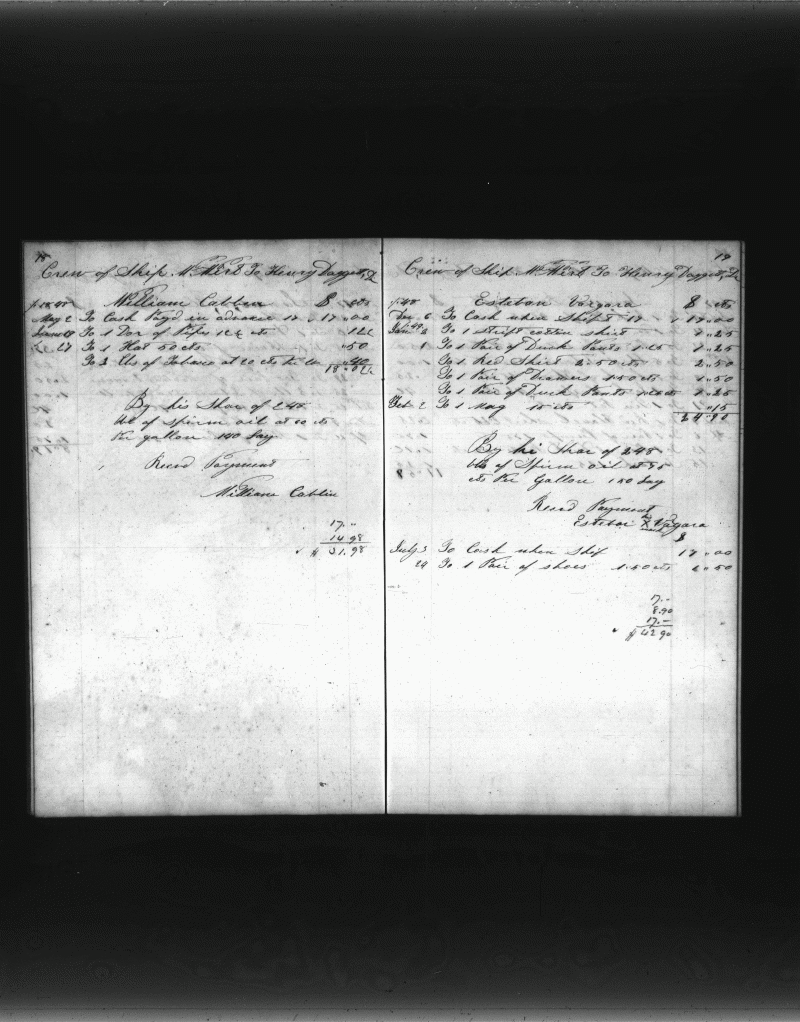 Crew of Ship To Henry Daggett, Dr
William Cablin $ cts
May 2 To Cash Pay'd in advance 17 17 "00
To 1 Doz of Pipes 12½ cts 12½
27 To 1 Hat 50 cts "50
To 2 lbs of Tobaco at 20 cts "40
18 "02½
By his Shar of 248
bls of Spirm oil at cts
Per gallon 140 Lay
Recvd Payment
William Cablin
17."
14.98
$ 31.98
19
Crew of Ship To Henry Daggett, Dr
Esteban Vargara $ cts
Dec 6 To Cash when Shipt 17 17 "00
2 To 1 Stript cotton shirt "25
1 To 1 Pair of Duck Pants 1.25 1 "25
To 1 Red Shirt 2.50 cts 2 "50
To 1 Pair of Drawers 1.50 cts 1 "50
To 1 Pair of Duck Pants cts 1 "25
Feb 2 To 1 Mug 15 cts "15
24 "90
By hi Shar of 248
bls of Spirm oil at
cts Per Gallon 150 Lay
Recvd Payment
Esteban X Vargara
mark
$
July 3 To Cash when Ship 17 "00
24 To 1 Pair of shoes 1.50 cts "50
17.-
8.90
17.-
$ 42.90